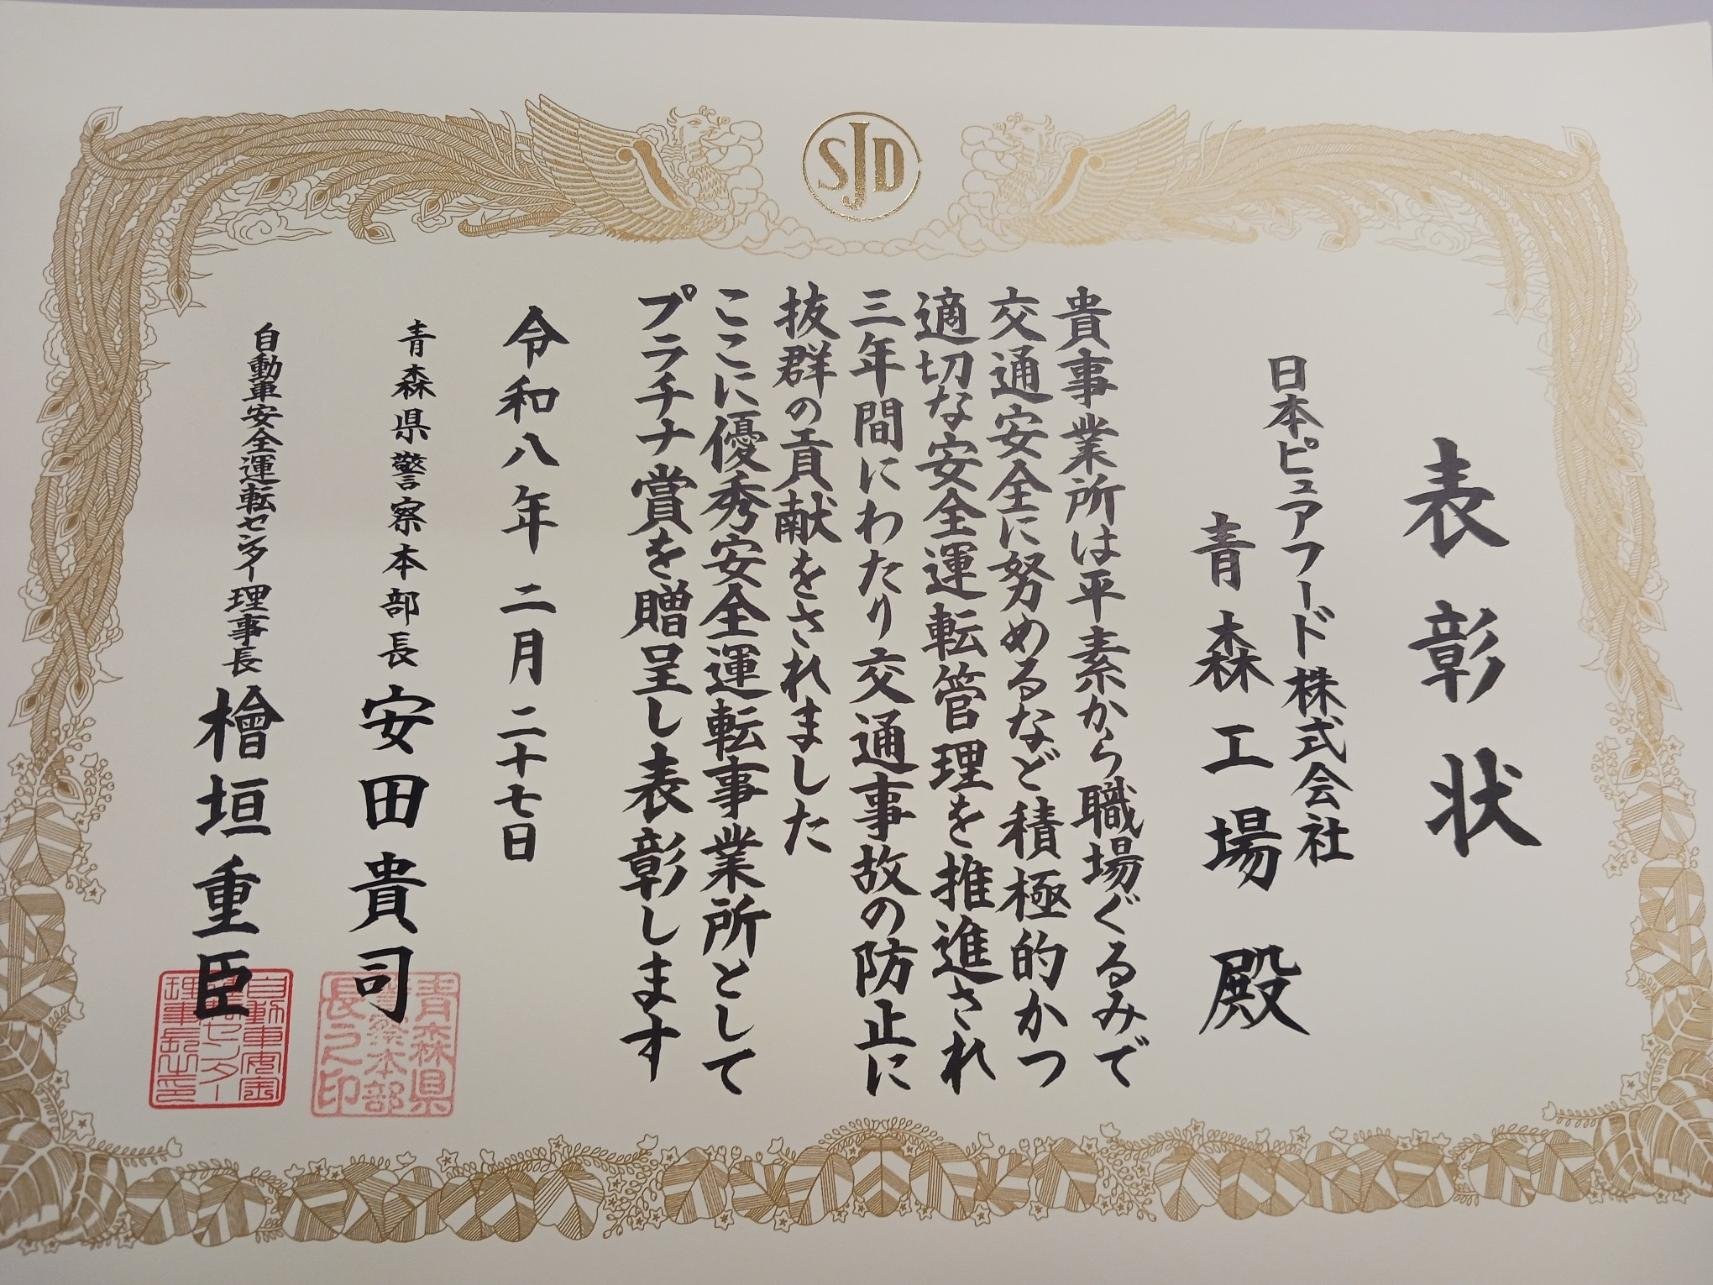 SJD
表彰状
日本ピュアフード株式会社
青森工場 殿
貴事業所は平素から職場ぐるみで
交通安全に努めるなど積極的かつ
適切な安全運転管理を推進され
三年間にわたり交通事故の防止に
抜群の貢献をされました
ここに優秀安全運転事業所として
プラチナ賞を贈呈し表彰します
令和八年二月二十七日
青森県警察本部長 安田貴司
青森県警察本部長之印
自動車安全運転センター理事長 檜垣重臣
自動車安全運転センター理事長之印